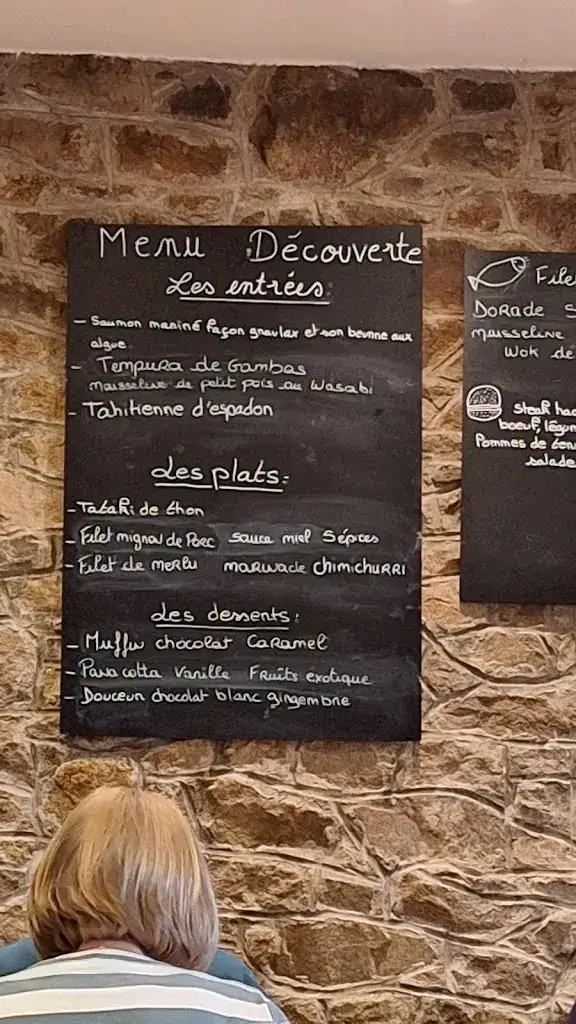 Menu Découverte
Les entrées:
- Saumon mariné façon gravlax et son beurre aux
algue
- Tempura de Gambas
mousseline de petit pois au Wasabi
- Tahitienne d'espadon
Les plats:
- Tataki de thon
- Filet mignon de Porc sauce miel 5épices
- Filet de merlu marinade chimichurri
Les desserts:
- Muffin chocolat caramel
- Pana cotta vanille Fruits exotique
- Douceur chocolat blanc gingembre
File
Dorade S
mousseline
Wok de
steak hac
boeuf, légum
Pommes de terr
salade